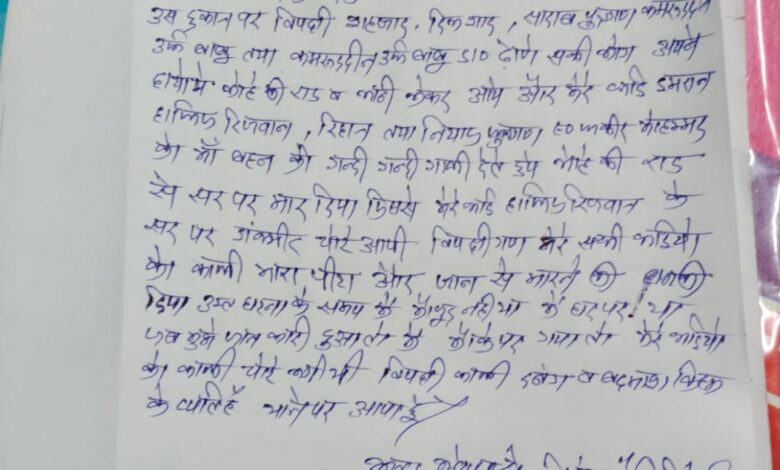 उस दुकान पर विपक्षी शहजाद, दिलशाद, साहाब पुत्रगण कमरुद्दीन
उर्फ बाबु तथा कमरुद्दीन उर्फ बाबु S/O ढोणे सभी लोग अपने
हाथो मे लोहे की राड व लाठी लेकर आये और मेरे भाई इमरान
हाफिज रिजवान, रिहान तथा नियाज पुत्रगण स्व फकीर मोहम्मद
को माँ बहन की गन्दी गन्दी गाली देते हुये लोहे की राड
से सर पर मार दिया जिससे मेरे भाई हाफिज रिजवान के
सर पर गंम्भीर चोटे आयी विपक्षीगण मेरे सभी भाईयो
को काफी मारा पीटा और जान से मारने की धमकी
दिया उक्त घटना के समय मै मौजूद नही था मै घर पर था
जब मुझे जानकारी हुआ तो मै मौके पर गया तो मेरे भाईयो
को काफी चोटे लगी थी विपक्षी काफी दबंग व बदमाश किस्म
के व्यक्ति है थाने पर आया हूँ